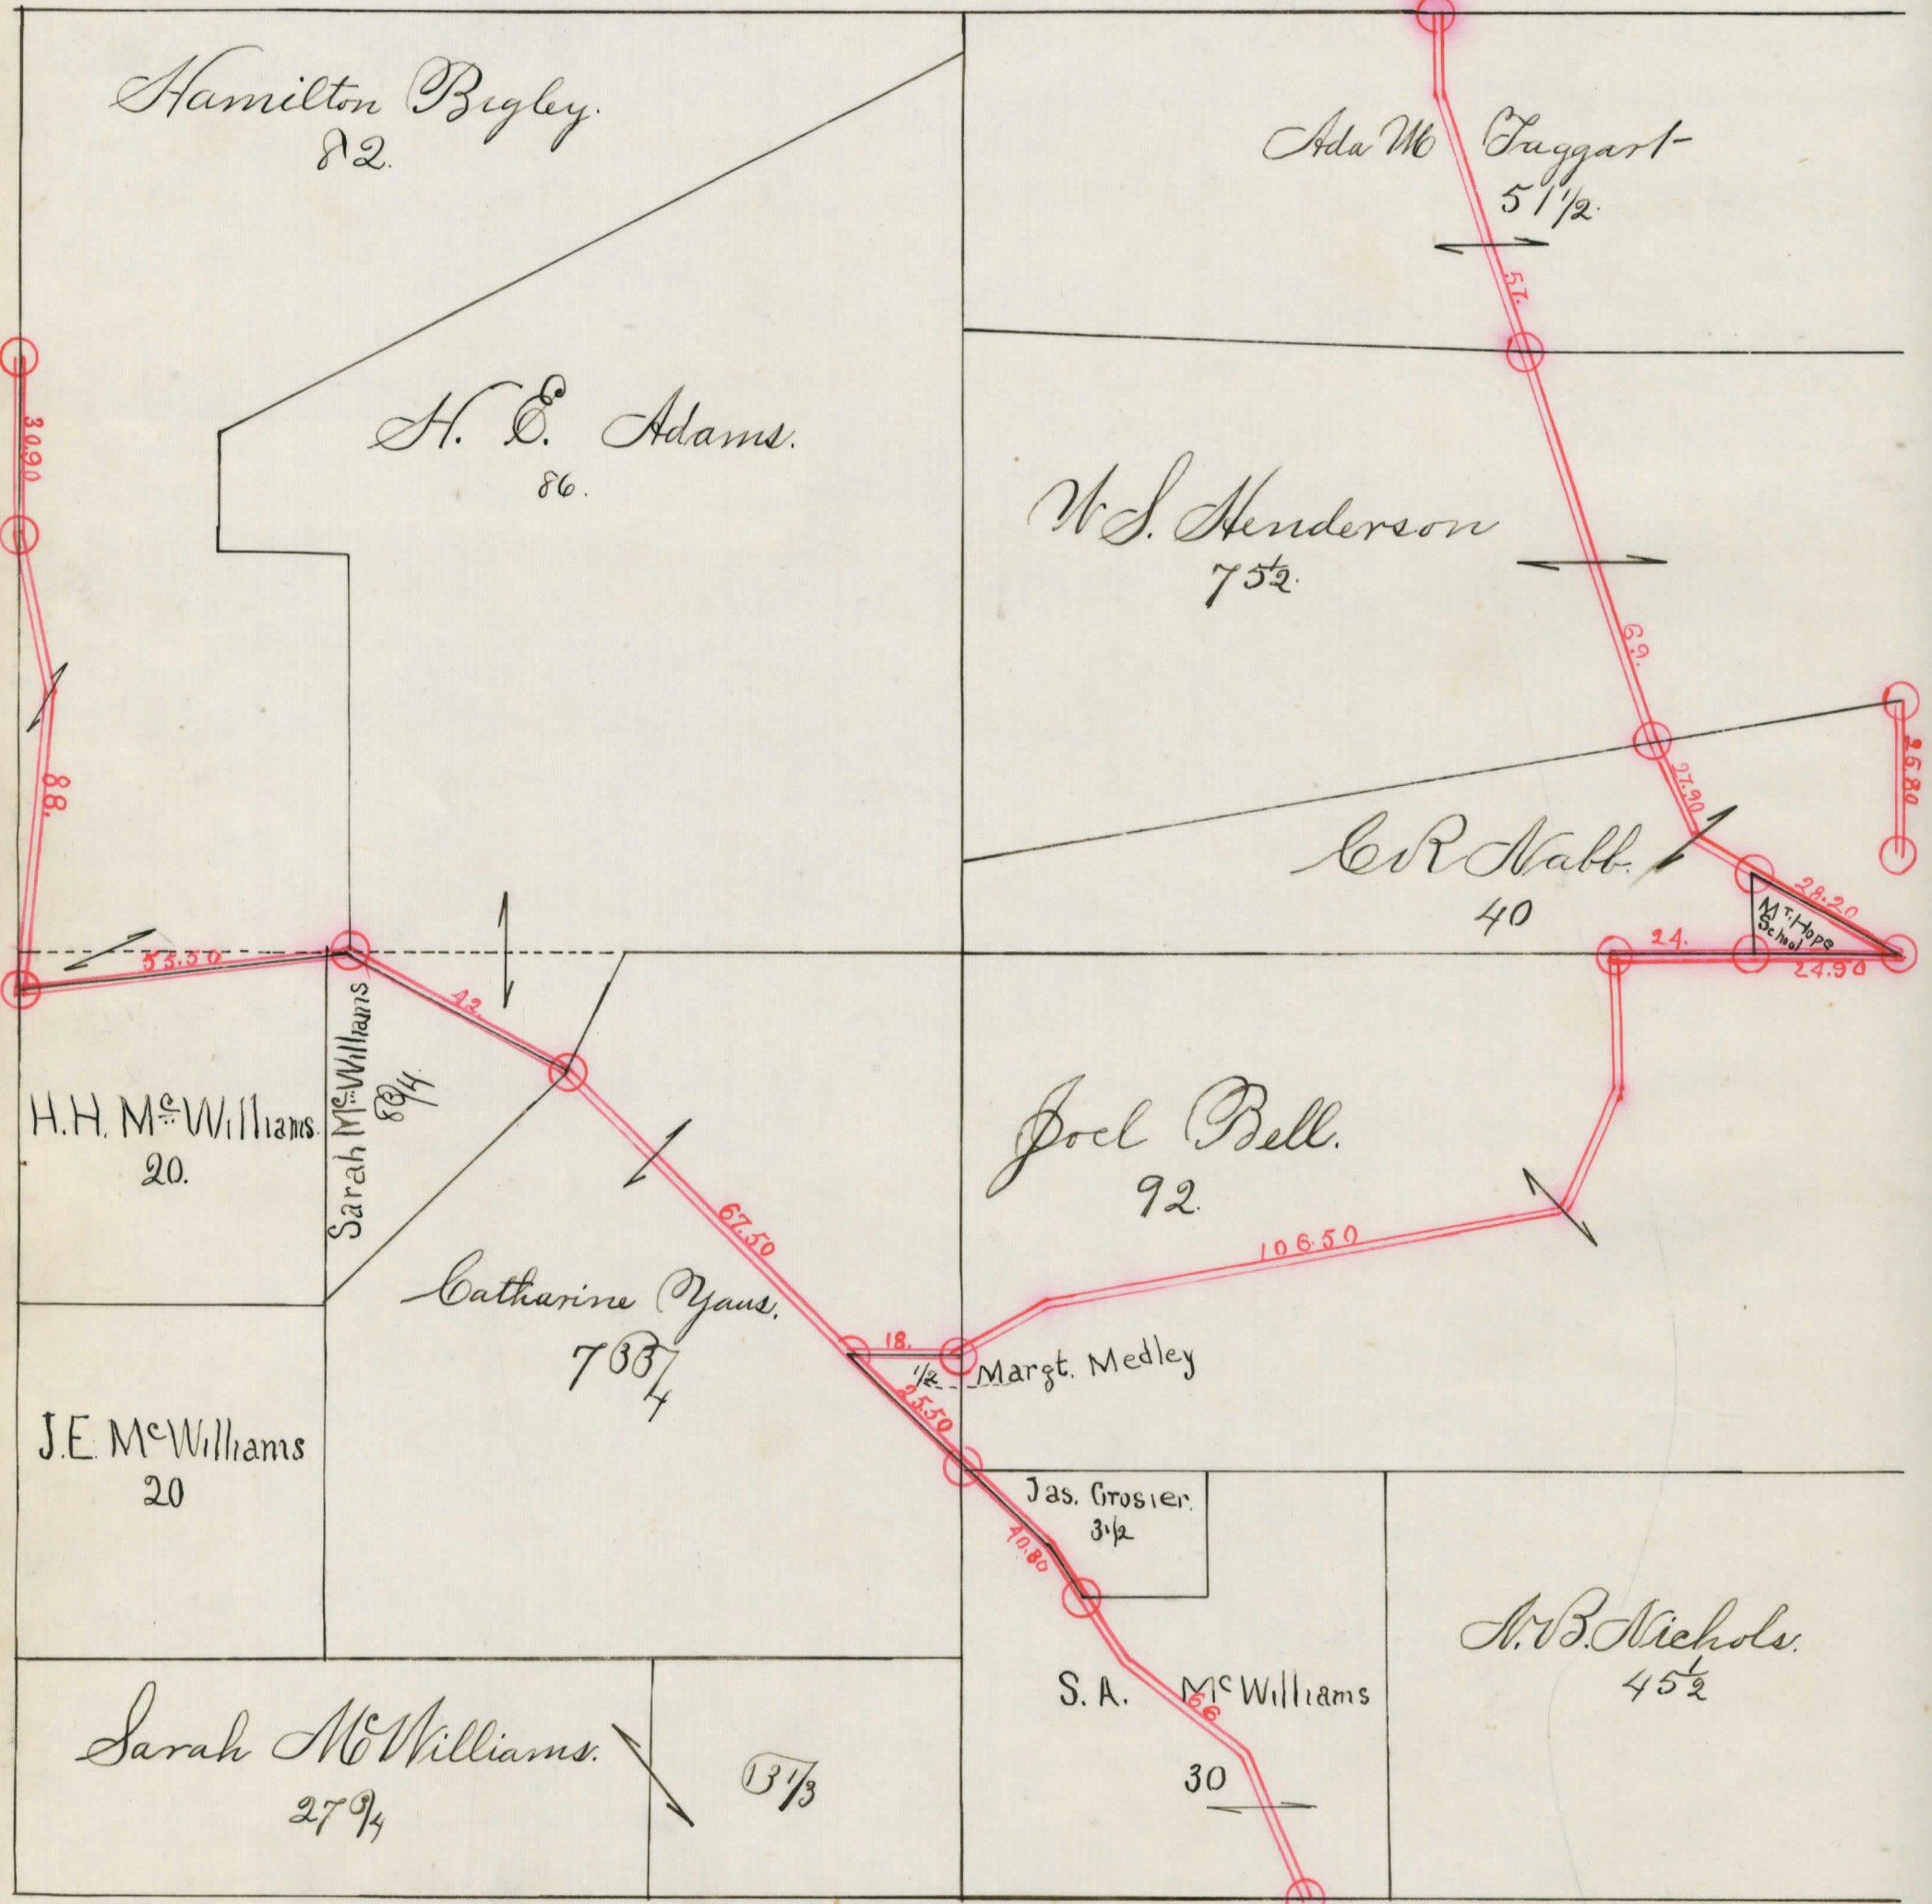 Hamilton Bigley.
82.
Ada M Taggart
51 1/2.
57.
30.90
H. E. Adams.
86.
W S. Henderson
75 1/2.
69.
88.
27.90
25.80
C R Nabb.
40
28.20
Mt. Hope
School
24.
24.90
55.50
42.
H.H. McWilliams.
20.
Sarah McWilliams
Joel Bell.
92.
67.50
106.50
Catharine Yaus.
18.
1/2
Margt. Medley
25.50
J.E. McWilliams
20
Jas. Crosier.
3 1/2
40.80
N.B. Nichols.
45 1/2
S. A. McWilliams
66
30
Sarah McWilliams.
27 3/4
13 1/3